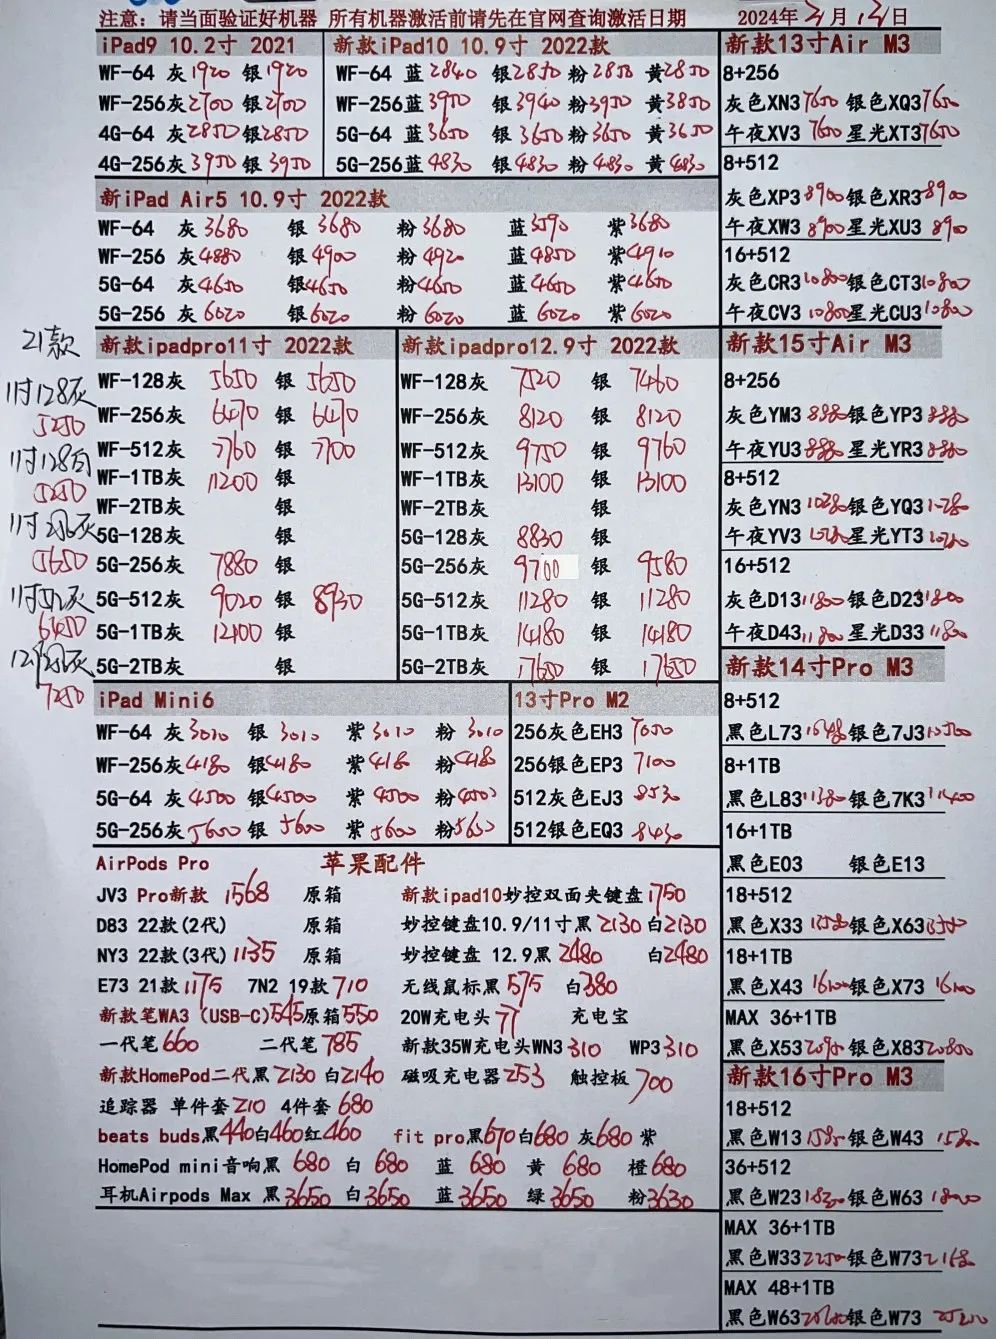 注意：请当面验证好机器 所有机器激活前请先在官网查询激活日期 2024年3月13日
iPad9 10.2寸 2021
WF-64 灰1920 银1920
WF-256灰2700 银2700
4G-64 灰2850 银2850
4G-256灰3950 银3950
新款iPad10 10.9寸 2022款
WF-64 蓝2840 银2850 粉2850 黄2850
WF-256蓝3950 银3940 粉3950 黄3850
5G-64 蓝3650 银3650 粉3650 黄3650
5G-256蓝4830 银4830 粉4830 黄4830
新iPad Air5 10.9寸 2022款
WF-64 灰3680 银3680 粉3680 蓝3590 紫3680
WF-256 灰4880 银4900 粉4920 蓝4850 紫4910
5G-64 灰4650 银4650 粉4650 蓝4650 紫4650
5G-256 灰6020 银6020 粉6020 蓝6020 紫6020
21款
11寸128灰
5250
11寸128白
5250
11寸256灰
5650
11寸512灰
6450
7250
新款ipadpro11寸 2022款
WF-128灰 5650 银 5650
WF-256灰 6470 银 6470
WF-512灰 7760 银 7700
WF-1TB灰 11200 银
WF-2TB灰 银
5G-128灰 银
5G-256灰 7880 银
5G-512灰 9020 银 8930
5G-1TB灰 12100 银
5G-2TB灰 银
新款ipadpro12.9寸 2022款
WF-128灰 7520 银 7460
WF-256灰 8120 银 8120
WF-512灰 9750 银 9760
WF-1TB灰 13100 银 13100
WF-2TB灰 银
5G-128灰 8830 银
5G-256灰 9700 银 9580
5G-512灰 11280 银 11280
5G-1TB灰 14180 银 14180
5G-2TB灰 17650 银 17650
iPad Mini6
WF-64 灰3010 银3010 紫3010 粉3010
WF-256灰4180 银4180 紫4180 粉4180
5G-64 灰4500 银4500 紫4500 粉4500
5G-256灰5600 银5600 紫5600 粉5600
13寸Pro M2
256灰色EH3 7050
256银色EP3 7100
512灰色EJ3 8530
512银色EQ3 8430
AirPods Pro 苹果配件
JV3 Pro新款 1568 原箱
D83 22款(2代) 原箱
NY3 22款(3代) 1135 原箱
E73 21款1175 7N2 19款710
新款笔WA3 (USB-C)545原箱550
一代笔660 二代笔785
新款HomePod二代黑2130 白2140
追踪器 单件套210 4件套680
新款ipad10妙控双面夹键盘1750
妙控键盘10.9/11寸黑2130 白2130
妙控键盘 12.9黑2480 白2480
无线鼠标黑575 白380
20W充电头77 充电宝
新款35W充电头WN3 310 WP3 310
磁吸充电器253 触控板700
beats buds黑440白460红460 fit pro黑670白680 灰680 紫
HomePod mini音响黑680 白680 蓝680 黄680 橙680
耳机Airpods Max 黑3650 白3650 蓝3650 绿3650 粉3630
新款13寸Air M3
8+256
灰色XN3 7650 银色XQ3 7650
午夜XV3 7650 星光XT3 7650
8+512
灰色XP3 8900 银色XR3 8900
午夜XW3 8900 星光XU3 8900
16+512
灰色CR3 10800 银色CT3 10800
午夜CV3 10800 星光CU3 10800
新款15寸Air M3
8+256
灰色YM3 8880 银色YP3 8880
午夜YU3 8880 星光YR3 8880
8+512
灰色YN3 10280 银色YQ3 10280
午夜YV3 10280 星光YT3 10280
16+512
灰色D13 11800 银色D23 11800
午夜D43 11800 星光D33 11800
新款14寸Pro M3
8+512
黑色L73 银色7J3 10500
8+1TB
黑色L83 11380 银色7K3 11400
16+1TB
黑色E03 银色E13
18+512
黑色X33 13580 银色X63 13580
18+1TB
黑色X43 16100 银色X73 16100
MAX 36+1TB
黑色X53 银色X83 20850
新款16寸Pro M3
18+512
黑色W13 银色W43
36+512
黑色W23 银色W63
MAX 36+1TB
黑色W33 银色W73
MAX 48+1TB
黑色W63 银色W73